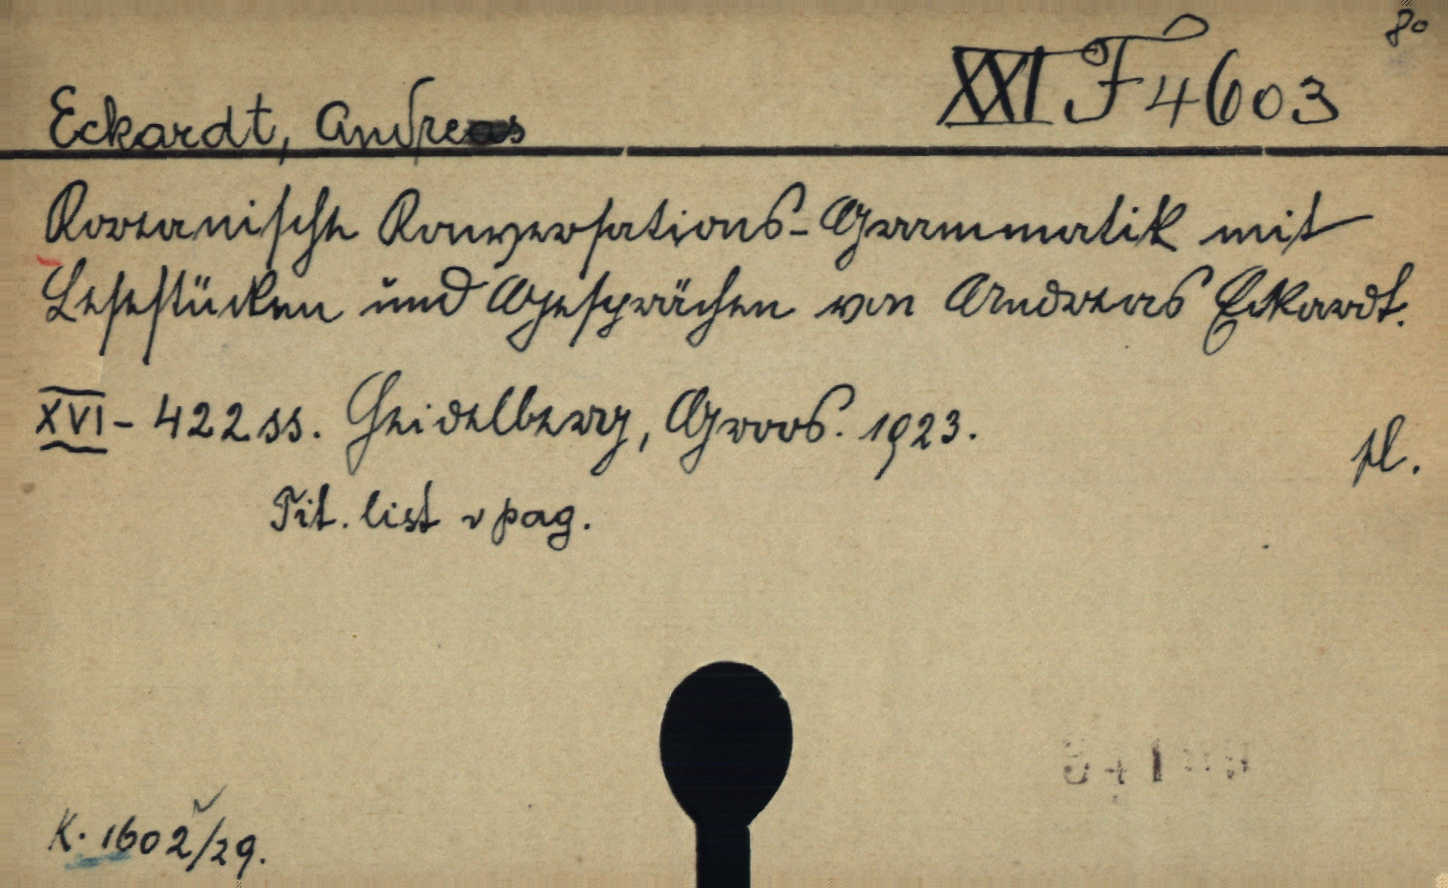 8o
XXI F 4603
Eckardt, Andreas
Koreanische Konversations-Grammatik mit
Lesestücken und Gesprächen von Andreas Eckardt.
XVI - 422 ss. Heidelberg, Groos. 1923.
pl.
Tit. list v pag.
K. 1602/29.